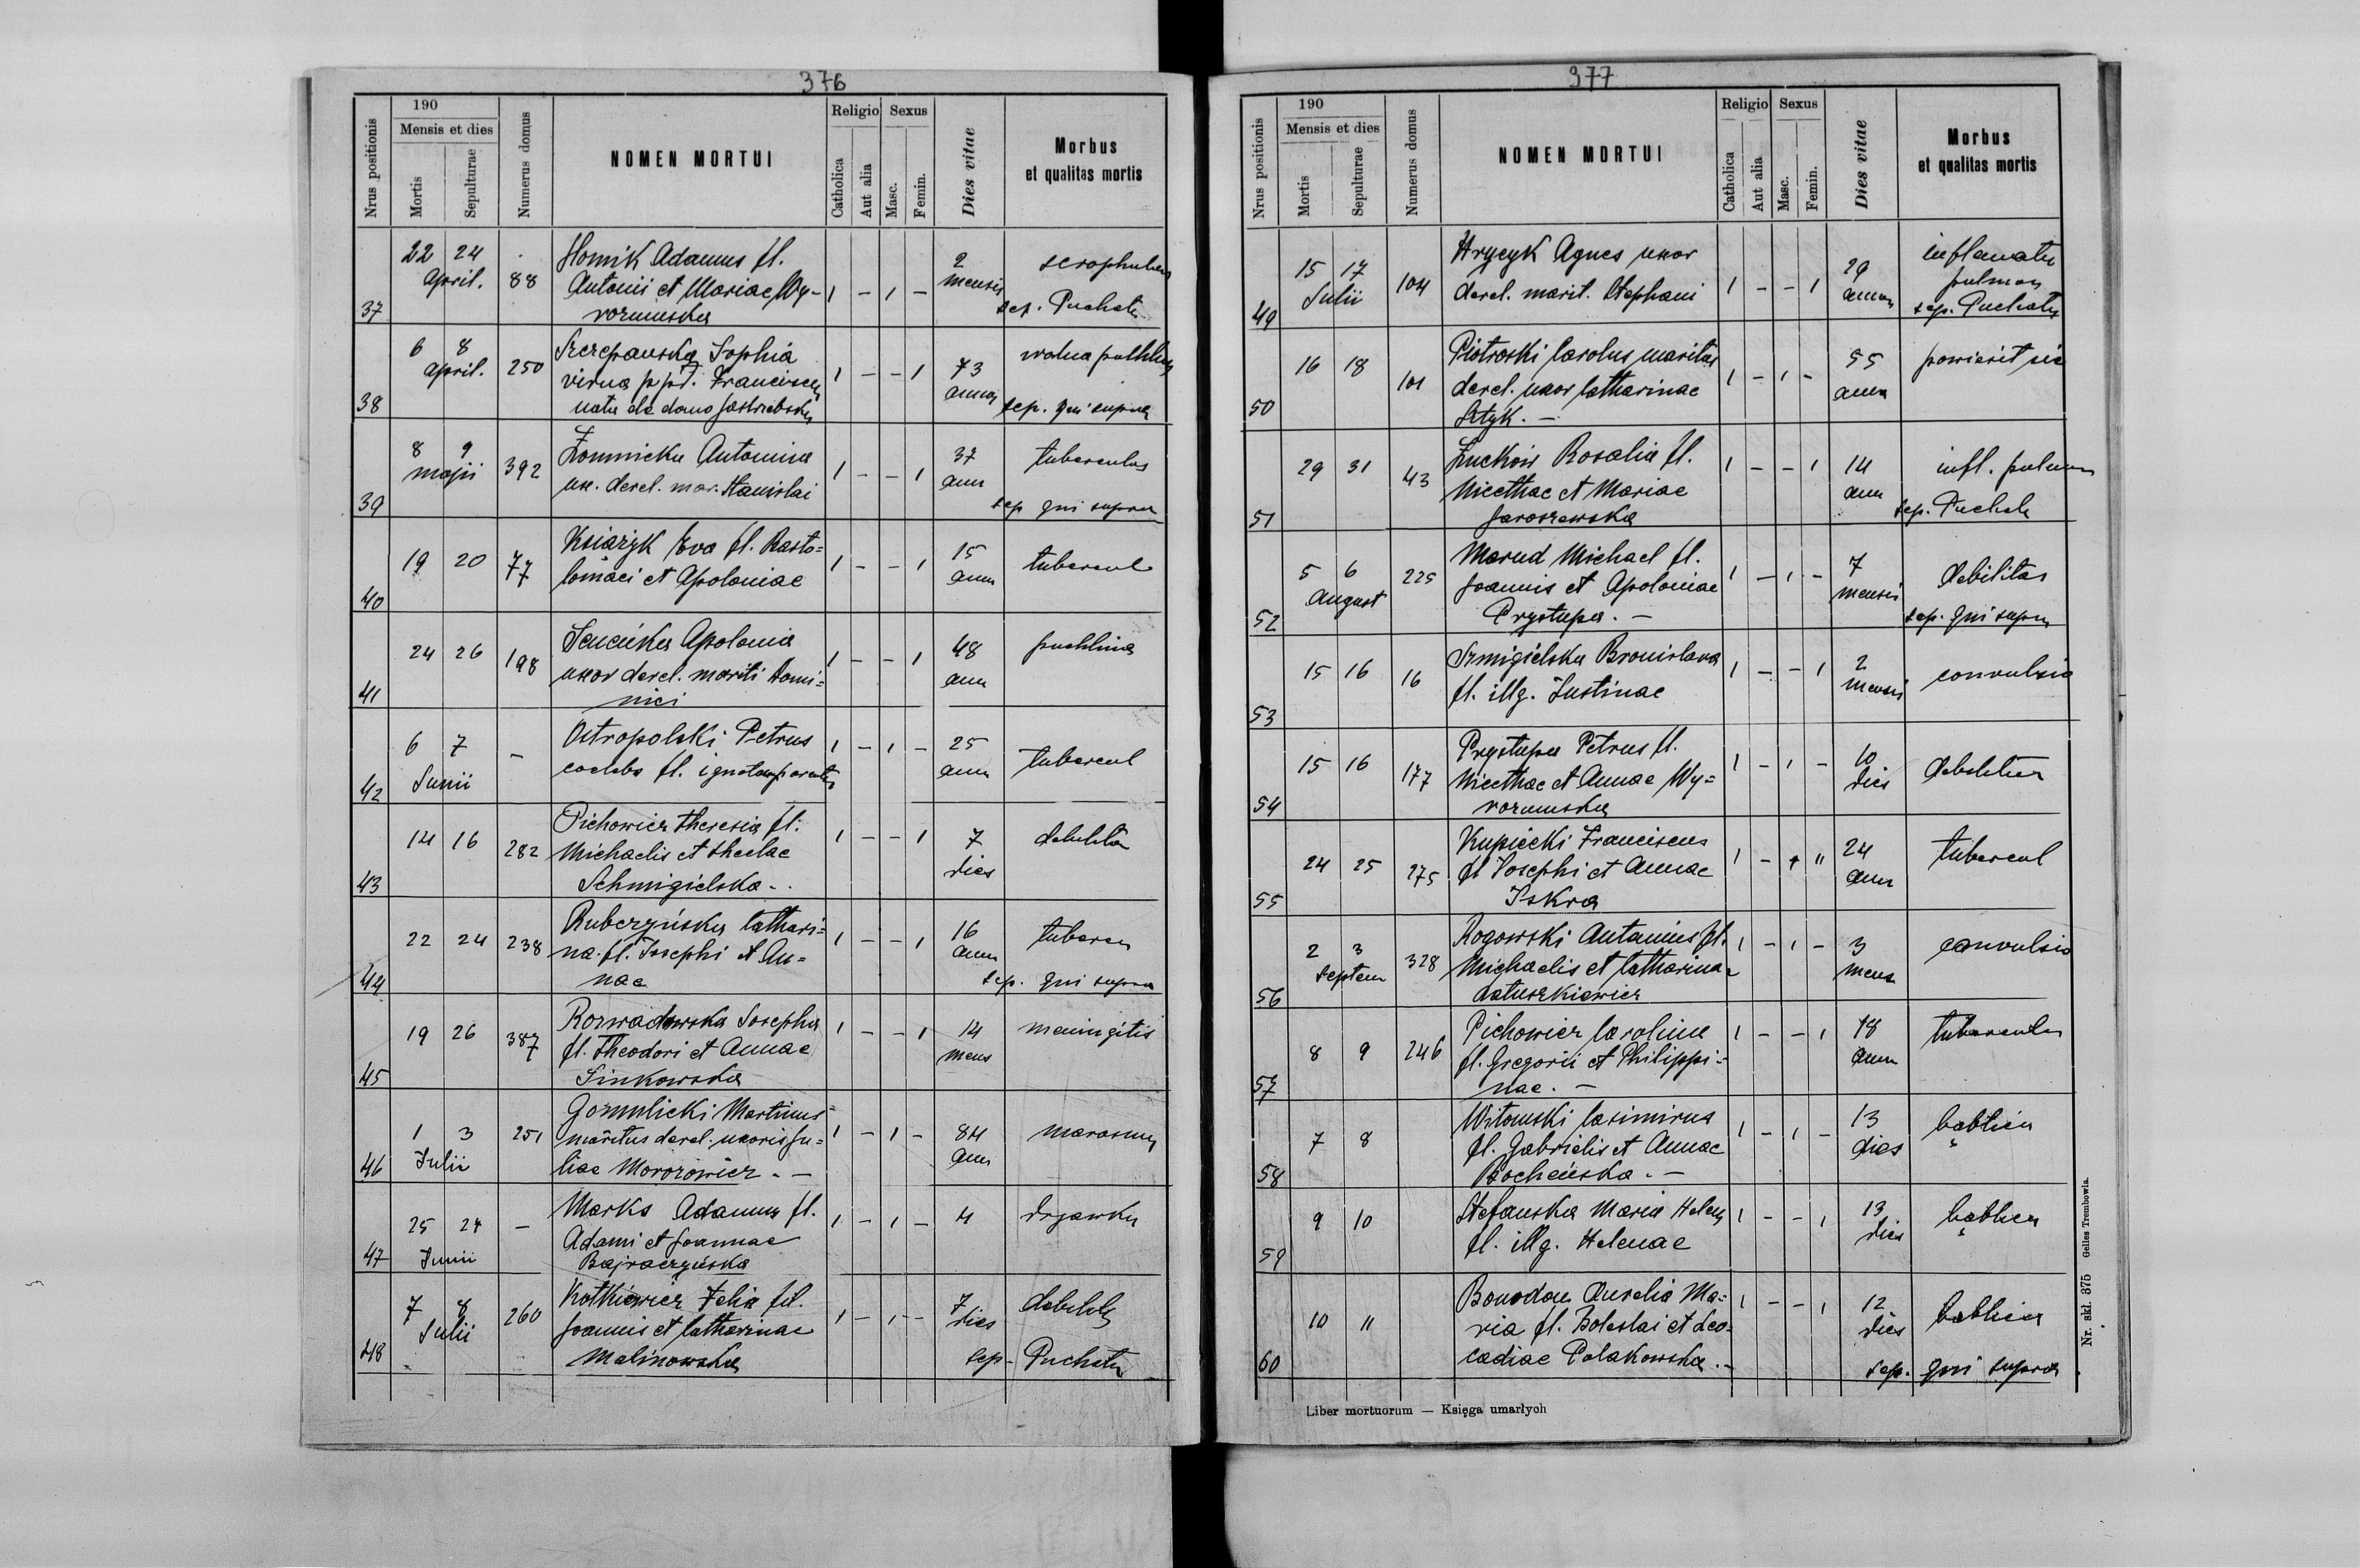 376
Nrus positionis
190
Mensis et dies
Mortis
Sepulturae
Numerus domus
NOMEN MORTUI
Religio
Catholica
Aut alia
Sexus
Masc.
Femin.
Dies vitae
Morbus
et qualitas mortis
37
22 24
April.
88
Homik Adamus fl.
Antonii et Mariae Wy-
1 - 1 -
2
mensis
sep. Puchate
38
6 8
April.
250
Szczepanska Sophia
Francisci
1 - - 1
73
annor
sep. qui supra
39
8 9
maji
392
Antonina
ux. derel. mar. Stanislai
1 - - 1
37
ann
tuberculos
sep qui supra
40
19 20
77
Ksiazyk Eva fl. Basto=
lomaei et Apoloniae
1 - - 1
15
ann
tubercul
41
24 26
198
Apolonia
uxor derel. mariti Domi=
nici
1 - - 1
48
ann
puchlina
42
6 7
Junii
-
Ostropolski Petrus
coelebs fl. ignotor parent
1 - 1 -
25
ann
tubercul
43
14 16
282
Pichowicz Theresia fl.
Michaelis et Theclae
Schmigielska -.
1 - - 1
7
dies
44
22 24
238
Ruberzyńska Cathari=
na. fl. Josephi et An=
nae
1 - - 1
16
ann
sep. qui supra
45
19 26
387
Rozwadowska Josepha
fl. Theodori et Annae
Sinkowska
1 - - 1
14
mens
meningitis
46
1 3
Julii
251
Gormulicki Martinus
maritus derel. uxoris Ju=
liae Morozowicz . -
1 - 1 -
84
ann
marasmus
47
25 27
Junii
-
Marks Adamus fl.
Adami et Joannae
Bajraczyńska
1 - 1 -
4
drgawka
48
7 8
Julii
260
Kotkiewicz Felix fil.
Joannis et Catharinae
Malinowska
1 - 1 -
7
dies
sep- Puchate
377
Nrus positionis
190
Mensis et dies
Mortis
Sepulturae
Numerus domus
NOMEN MORTUI
Religio
Catholica
Aut alia
Sexus
Masc.
Femin.
Dies vitae
Morbus
et qualitas mortis
49
15 17
Julii
104
Hrycyk Agnes uxor
derel. marit. Stephani
1 - - 1
29
annor
pulmon
sep. Puchate
50
16 18
101
Piotroski Carolus maritus
derel. uxor Catharinae
Sztyk. -
1 - 1 -
55
ann
powiesił się
51
29 31
43
Rosalia fl.
Nicethae et Mariae
Jaroszewska
1 - - 1
14
ann
infl. pulmon
sep. Puchate
52
5 6
August
225
Marud Michael fl.
Joannis et Apoloniae
Prystupa . -
1 - 1 -
7
mensis
debilitas
sep. qui supra
53
15 16
16
Szmigielska Bronislava
fl. illg. Justinae
1 - - 1
2
mensis
convulsio
54
15 16
177
Prystupa Petrus fl.
Nicethae et Annae Wy=
1 - 1 -
10
dies
55
24 25
275
Kupiecki Franciscus
fl Josephi et Annae
Iskra
1 - 1 "
24
ann
tubercul
56
2 3
Septem
328
Rogowski Antonius fl.
Michaelis et Catharinae
1 - 1 -
3
mens
convulsio
57
8 9
246
Pichowicz Carolina
fl. Gregorii et Philippi=
nae. -
1 - - 1
18
ann
58
7 8
Witomski Casimirus
fl. Gabrielis et Annae
Bocheńska . -
1 - 1 -
13
dies
59
9 10
Stefanska Maria Helena
fl. illg. Helenae
1 - - 1
13
dies
60
10 11
Aurelia Ma=
ria fl. Boleslai et Leo=
cadiae Polakowska . -
1 - - 1
12
dies
sep. qui supra
Liber mortuorum — Księga umarłych
Nr. skł. 375 Gelles Trembowla.